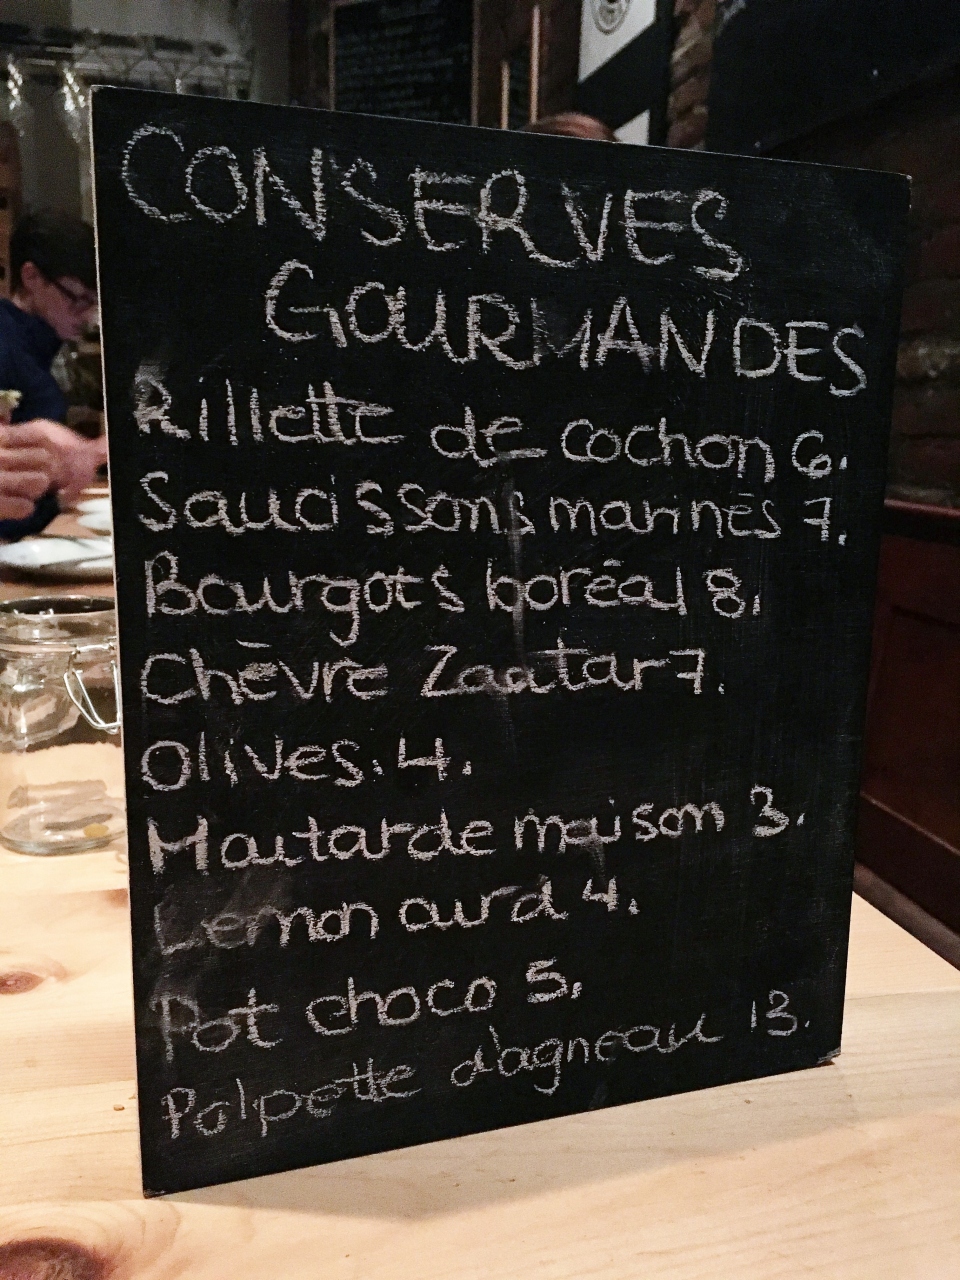 CONSERVES
GOURMANDES
Rillette de cochon 6.
Saucissons marinés 7.
Bourgots boréal 8.
Chèvre Zaatar 7.
Olives. 4.
Moutarde maison 3.
Lemon curd 4.
Pot choco 5.
Polpette d'agneau 13.